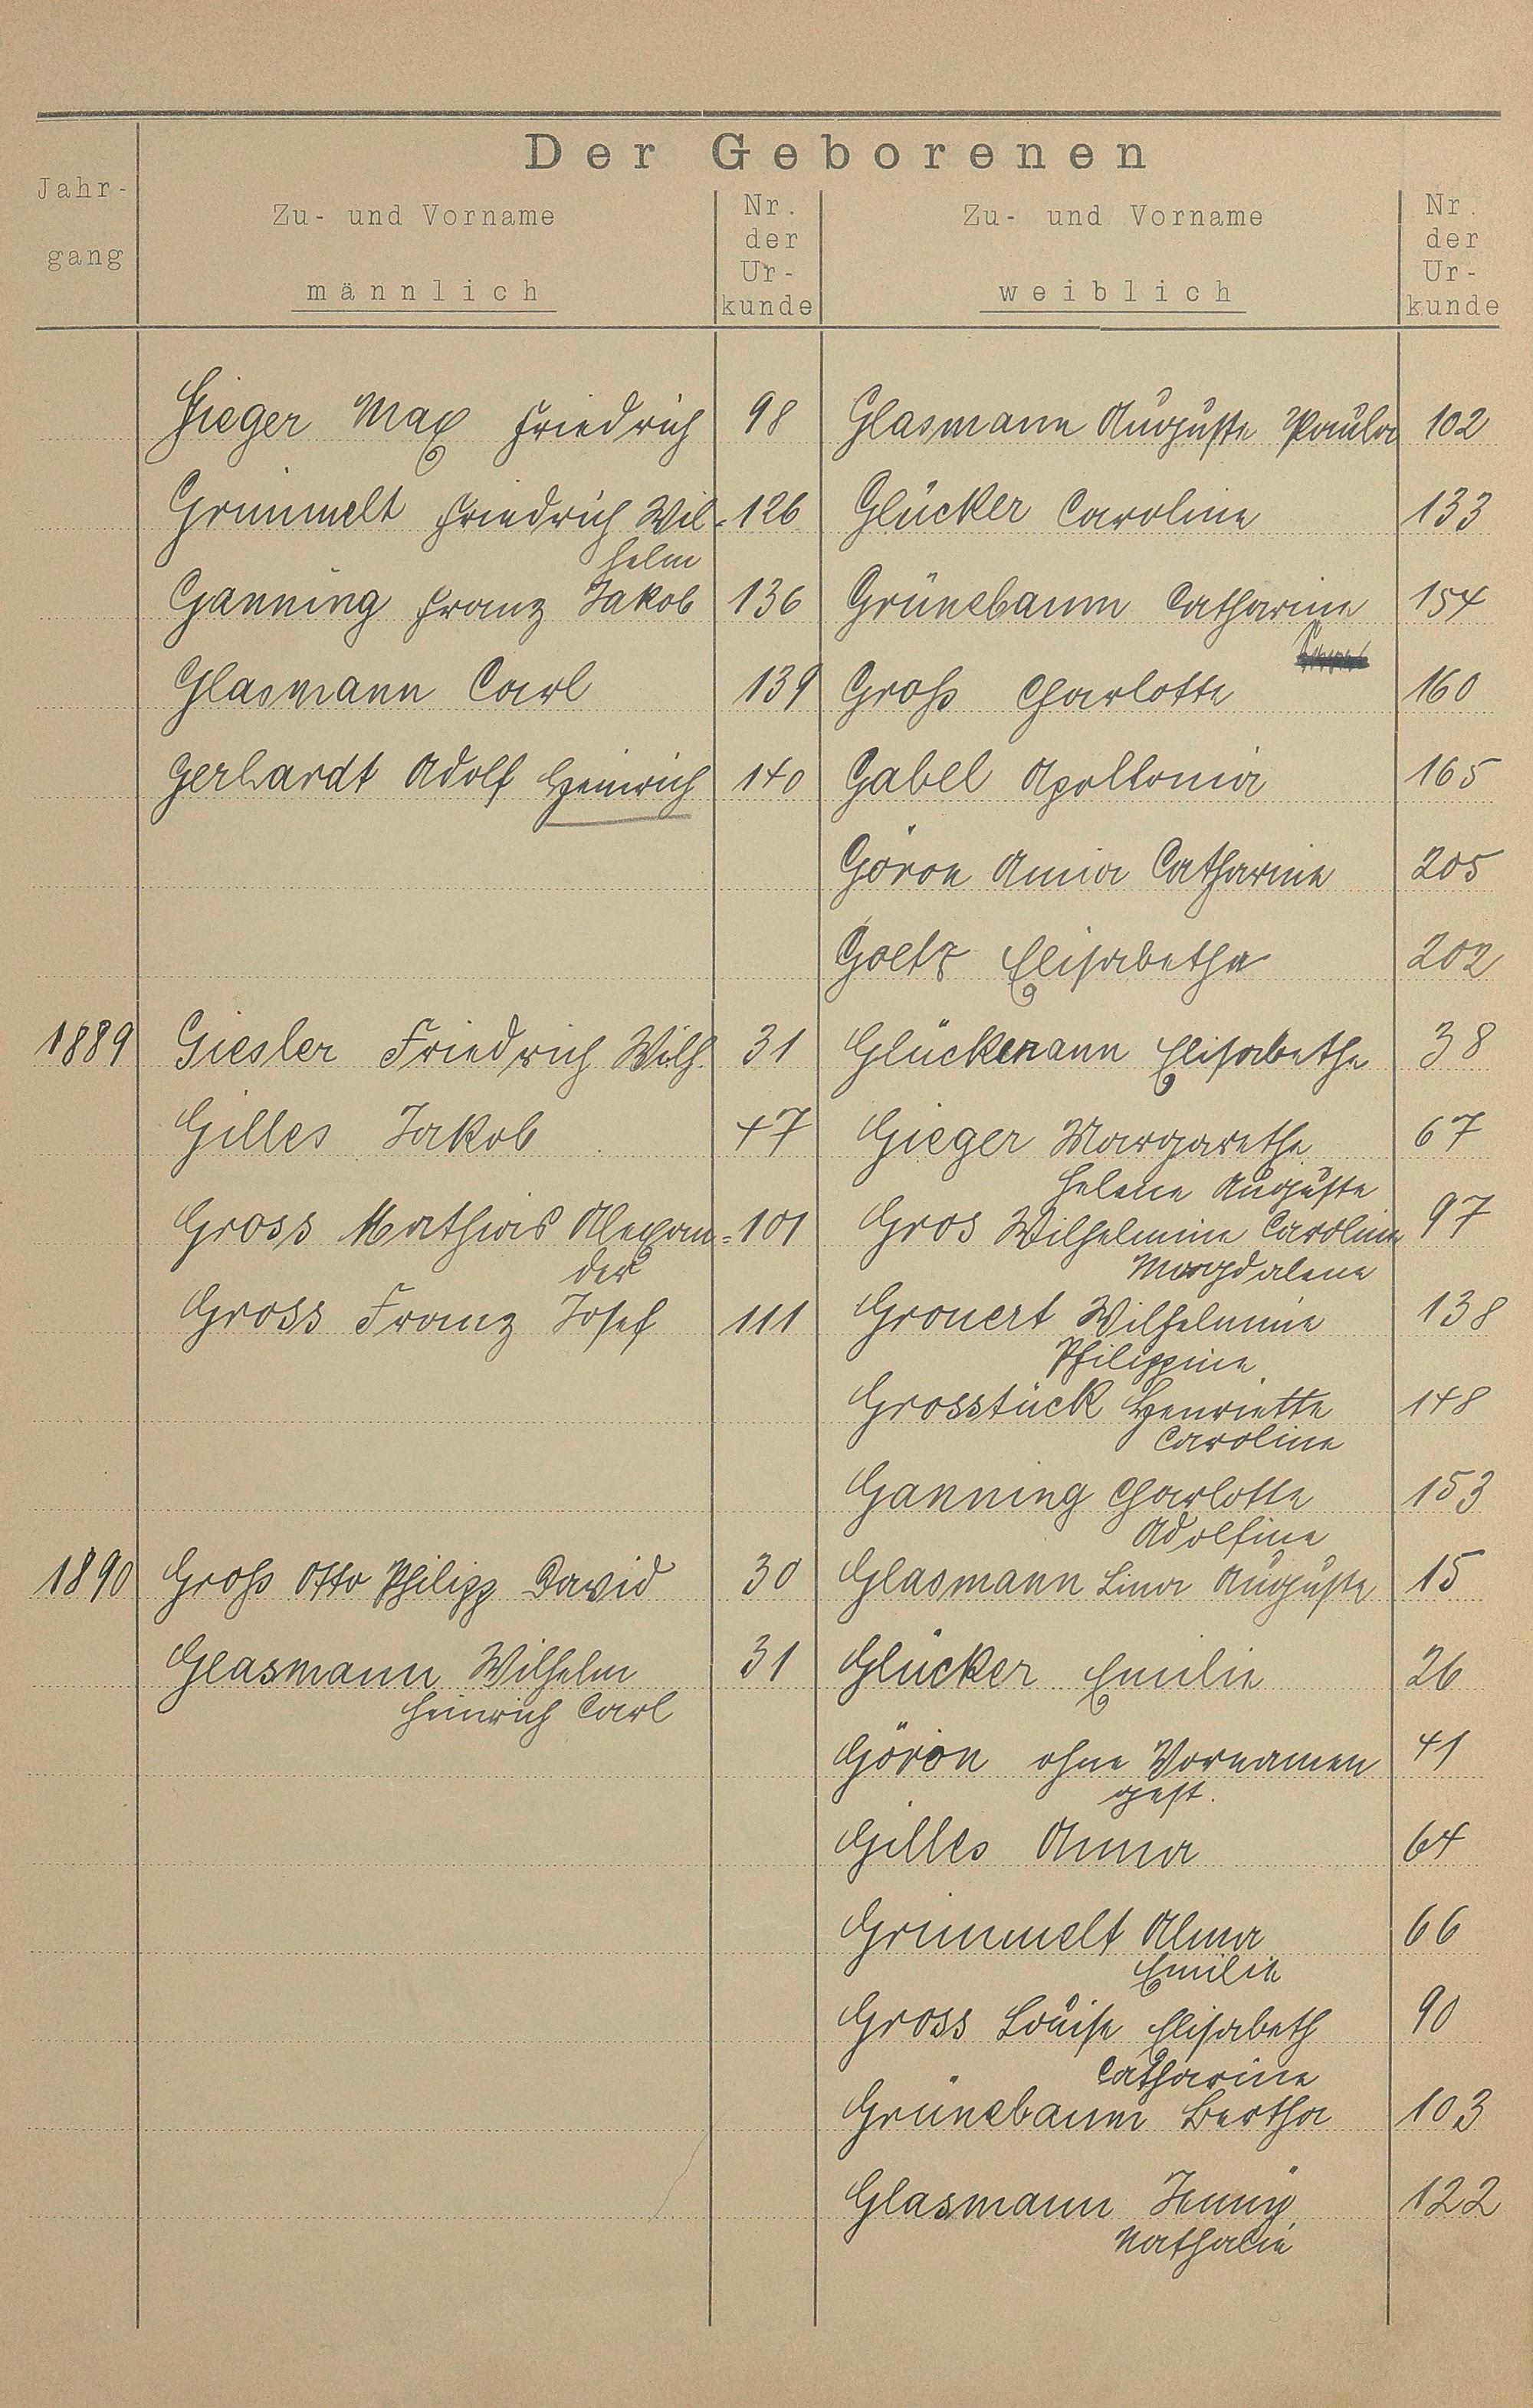 Der Geborenen
Jahr-
gang
Zu- und Vorname
männlich
Nr.
der
Ur-
kunde
Zu- und Vorname
weiblich
Nr.
der
Ur-
kunde
Gieger Max Friedrich 98 Glasmann Auguste Paula 102
Grimmelt Friedrich Wil- 126 Glücker Caroline 133
helm
Ganning Franz Jakob 136 Grünebaum Catharine 154
Glasmann Carl 139 Groß Charlotte 160
Gerhardt Adolf Heinrich 140 Gabel Apollonia 165
Göron Anna Catharine 205
Goeltz Elisabetha 202
1889 Giesler Friedrich Wilh. 31 Glückmann Elisabetha 38
Gilles Jakob 47 Gieger Margaretha 67
Helene Auguste
Gross Mathias Alexan= 101 Gros Wilhelmine Caroline 97
der Magdalena
Gross Franz Josef 111 Gronert Wilhelmine 138
Philippine
Grosstück Henriette 148
Caroline
Ganning Charlotte 153
Adolfine
1890 Groß Otto Philipp David 30 Glasmann Lina Auguste 15
Glasmann Wilhelm 31 Glücker Emilie 26
Heinrich Carl
Göron ohne Vornamen 41
gest.
Gilles Anna 64
Grimmelt Alma 66
Emilie
Gross Louise Elisabeth 90
Catharine
Grünebaum Bertha 103
Glasmann Jenny 122
Nathalie